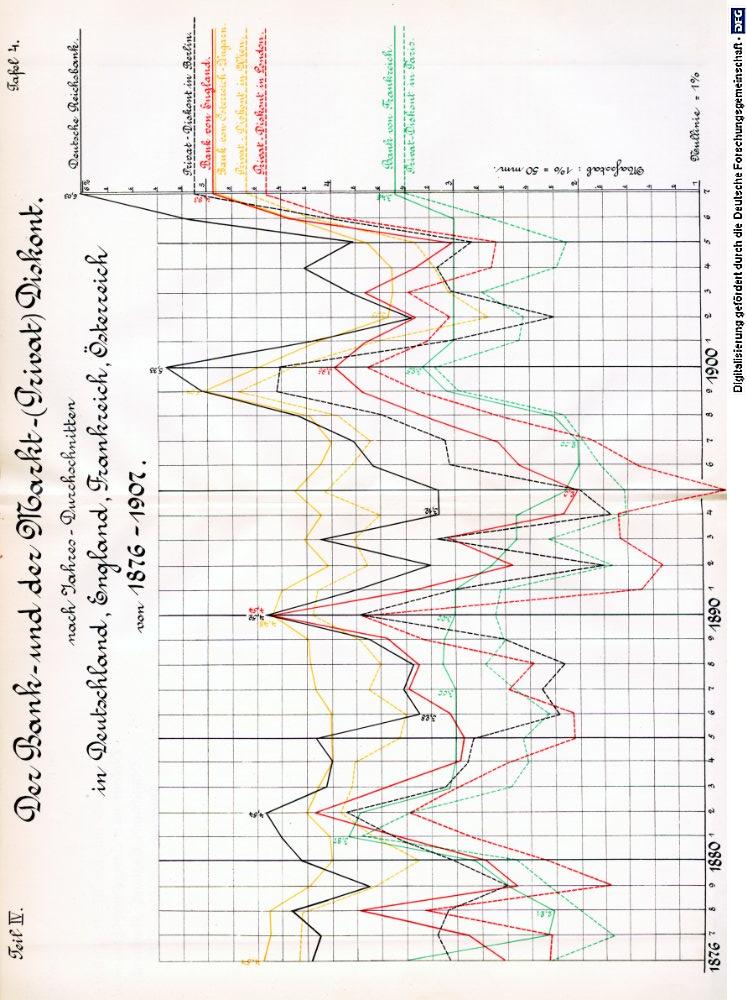 Teil IV.
Tafel 4.
Der Bank- und der Markt-(Privat) Diskont.
nach Jahres-Durchschnitten
in Deutschland, England, Frankreich, Österreich
von 1876-1907.
Deutsche Reichsbank.
Privat-Diskont in Berlin.
Bank von England.
Bank von Österreich-Ungarn.
Privat-Diskont in Wien.
Privat-Diskont in London.
Bank von Frankreich.
Privat-Diskont in Paris.
Maßstab: 1% = 50 mm.
Nullinie = 1%
6%
5
4
3
2
1
4,54
3,88
3,12
3,96
3,00
2,20
1876 7 8 9 1880 1 2 3 4 5 6 7 8 9 1890 1 2 3 4 5 6 7 8 9 1900 1 2 3 4 5 6 7
Digitalisierung gefördert durch die Deutsche Forschungsgemeinschaft · DFG